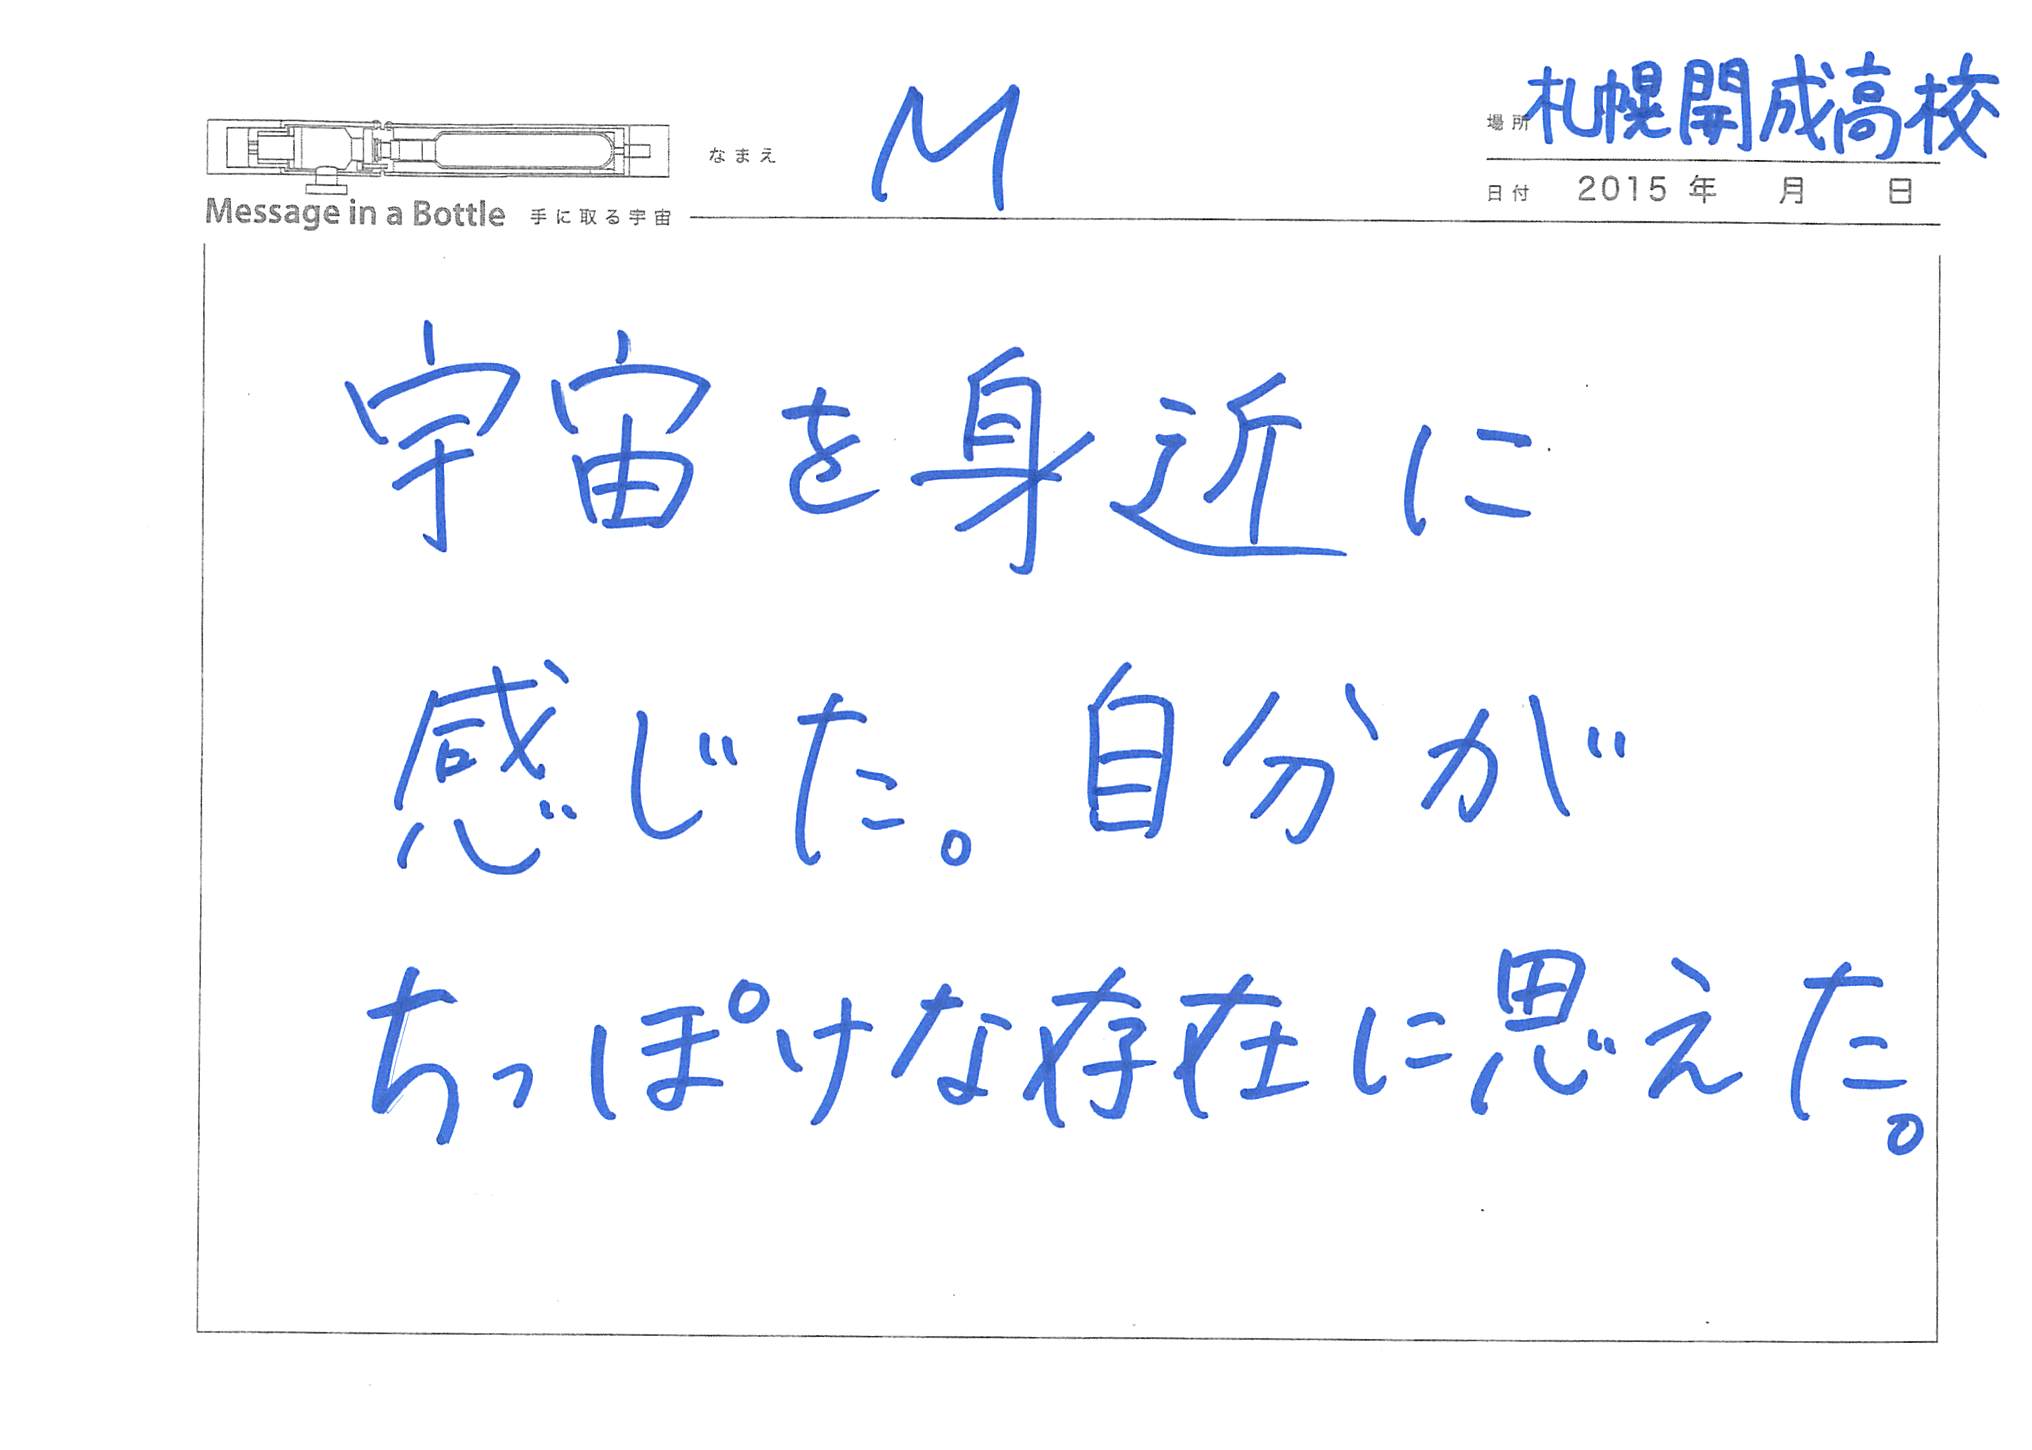 なまえ M
場所 札幌開成高校
日付 2015 年 月 日
Message in a Bottle 手に取る宇宙
宇宙を身近に
感じた。自分が
ちっぽけな存在に思えた。